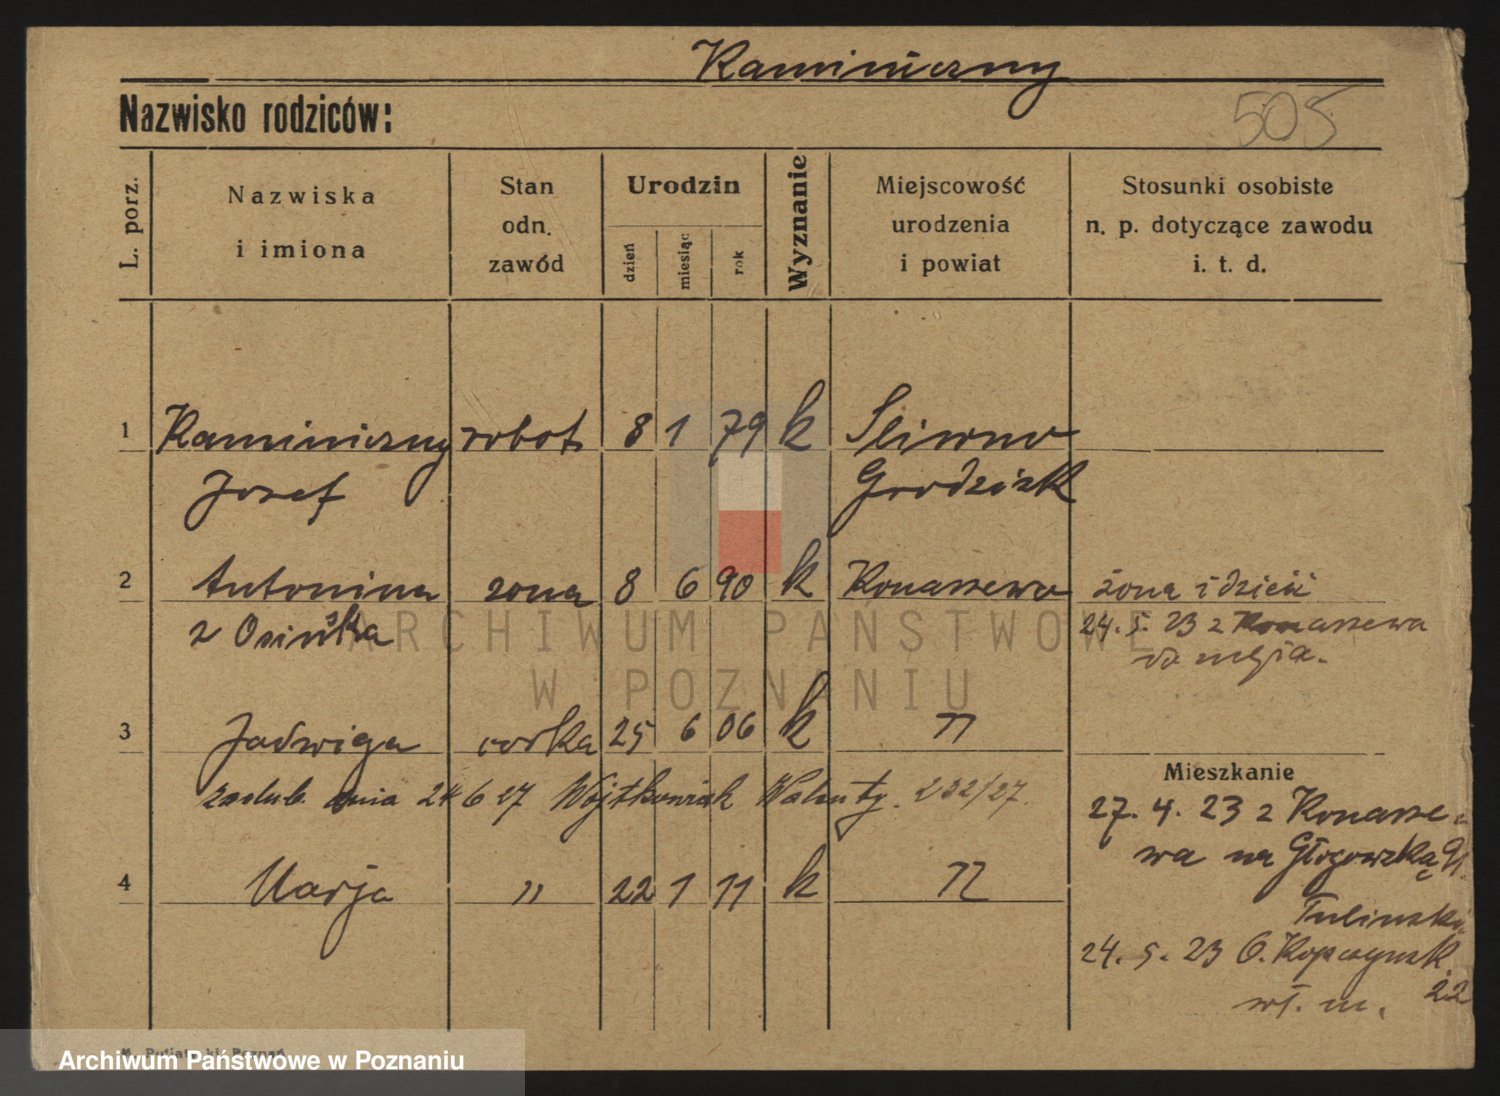 Kaminiczny
Nazwisko rodziców:
505
L. porz.
Nazwiska
i imiona
Stan
odn.
zawód
Urodzin
dzień
miesiąc
rok
Wyznanie
Miejscowość
urodzenia
i powiat
Stosunki osobiste
n. p. dotyczące zawodu
i. t. d.
1 Kaminiczny robot. 8 1 79 k Sliwno
Josef Grodzisk
2 Antonina zona 8 6 90 k Konarzewo żona i dzieci
z Osińska 24. 5. 23 z Konarzewa
do męża.
3 Jadwiga corka 25 6 06 k "
Mieszkanie
zaslub. dnia 24 6 27 Wojtkowiak Walenty. 232/27.
27. 4. 23 z Konarze-
wa na Głogowską 91.
4 Marja " 22 1 11 k "
24. 5. 23 6. 22
wł. m.
ARCHIWUM PAŃSTWOWE
W POZNANIU
Archiwum Państwowe w Poznaniu